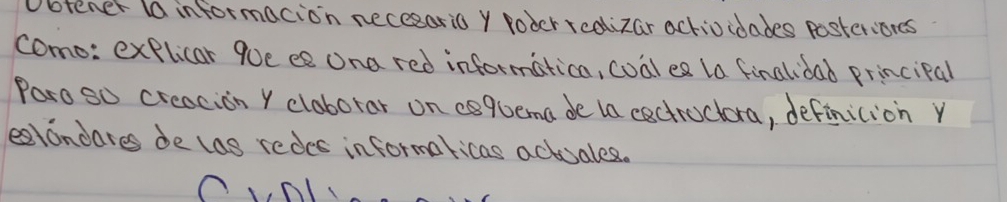 Obtener la información necesaria y poder realizar actividades posteriores
como: explicar que es una red informática, cuál es la finalidad principal
Para su creación y elaborar un esquema de la estructura, definición y
estándares de las redes informaticas actuales.